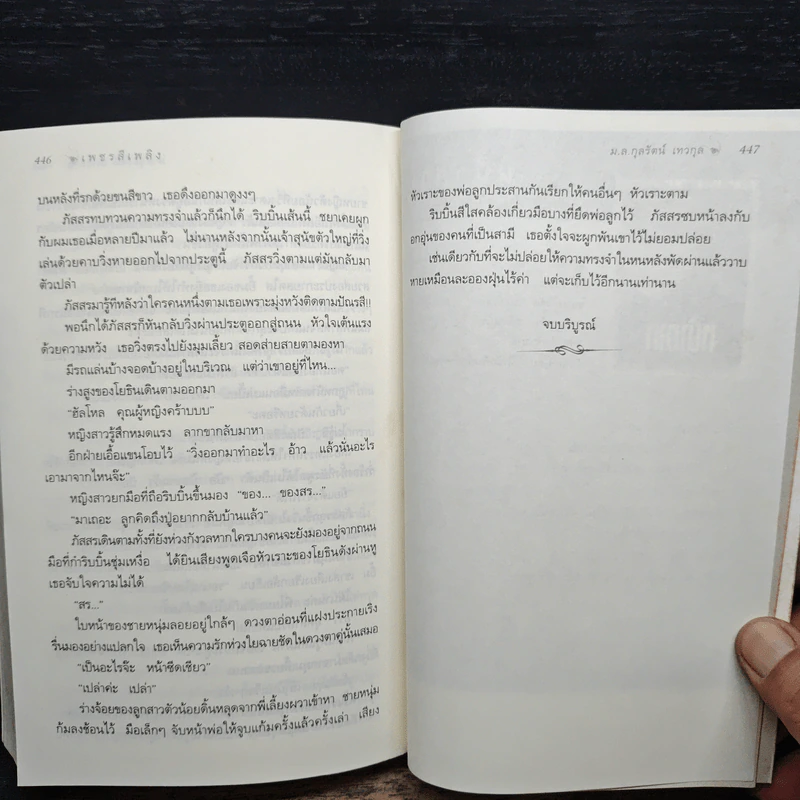 446 เพชรสีเพลิง
บนหลังที่รกด้วยขนสีขาว เธอดึงออกมาดูงงๆ
ภัสสรทบทวนความทรงจำแล้วก็นึกได้ ริบบิ้นเส้นนี้ ชยาเคยผูก
กับผมเธอเมื่อหลายปีมาแล้ว ไม่นานหลังจากนั้นเจ้าสุนัขตัวใหญ่ที่วิ่ง
เล่นด้วยคาบวิ่งหายออกไปจากประตูนี้ ภัสสรวิ่งตามแต่มันกลับมา
ตัวเปล่า
ภัสสรมารู้ทีหลังว่าใครคนหนึ่งตามเธอเพราะมุ่งหวังติดตามปัณรสี!!
พอนึกได้ภัสสรก็หันกลับวิ่งผ่านประตูออกสู่ถนน หัวใจเต้นแรง
ด้วยความหวัง เธอวิ่งตรงไปยังมุมเลี้ยว สอดส่ายสายตามองหา
มีรถแล่นบ้างจอดบ้างอยู่ในบริเวณ แต่ว่าเขาอยู่ที่ไหน...
ร่างสูงของโยธินเดินตามออกมา
“ฮัลโหล คุณผู้หญิงคร้าบบบ”
หญิงสาวรู้สึกหมดแรง ลากขากลับมาหา
อีกฝ่ายเอื้อแขนโอบไว้ “วิ่งออกมาทำอะไร อ้าว แล้วนั่นอะไร
เอามาจากไหนจ๊ะ”
หญิงสาวยกมือที่ถือริบบิ้นขึ้นมอง “ของ... ของสร...”
“มาเถอะ ลูกคิดถึงปู่อยากกลับบ้านแล้ว”
ภัสสรเดินตามทั้งที่ยังห่วงกังวลหากใครบางคนจะยังมองอยู่จากถนน
มือที่กำริบบิ้นชุ่มเหงื่อ ได้ยินเสียงพูดเจือหัวเราะของโยธินดังผ่านหู
เธอจับใจความไม่ได้
“สร...”
ใบหน้าของชายหนุ่มลอยอยู่ใกล้ๆ ดวงตาอ่อนที่แฝงประกายเริง
รื่นมองอย่างแปลกใจ เธอเห็นความรักห่วงใยฉายชัดในดวงตาคู่นั้นเสมอ
“เป็นอะไรจ๊ะ หน้าซีดเชียว”
“เปล่าค่ะ เปล่า”
ร่างจ้อยของลูกสาวตัวน้อยดิ้นหลุดจากพี่เลี้ยงผวาเข้าหา ชายหนุ่ม
ก้มลงช้อนไว้ มือเล็กๆ จับหน้าพ่อให้จูบแก้มครั้งแล้วครั้งเล่า เสียง
ม.ล กุลรัตน์ เทวกุล 447
หัวเราะของพ่อลูกประสานกันเรียกให้คนอื่นๆ หัวเราะตาม
ริบบิ้นสีใสคล้องเกี่ยวมือบางที่ยึดพ่อลูกไว้ ภัสสรซบหน้าลงกับ
อกอุ่นของคนที่เป็นสามี เธอตั้งใจจะผูกพันเขาไว้ไม่ยอมปล่อย
เช่นเดียวกับที่จะไม่ปล่อยให้ความทรงจำในหนหลังพัดผ่านแล้ววาบ
หายเหมือนละอองฝุ่นไร้ค่า แต่จะเก็บไว้อีกนานเท่านาน
จบบริบูรณ์